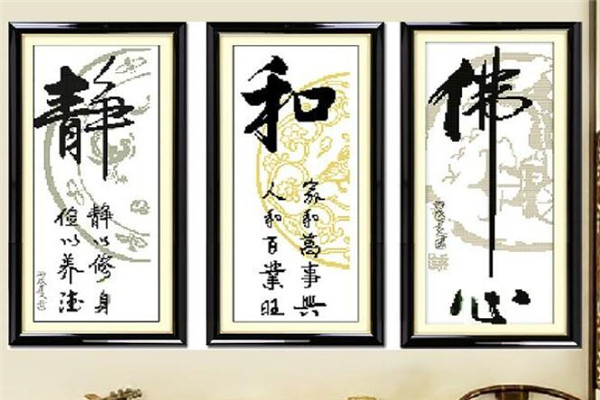 静
静以修身
俭以养德
和
家和万事兴
人和百业旺
佛心